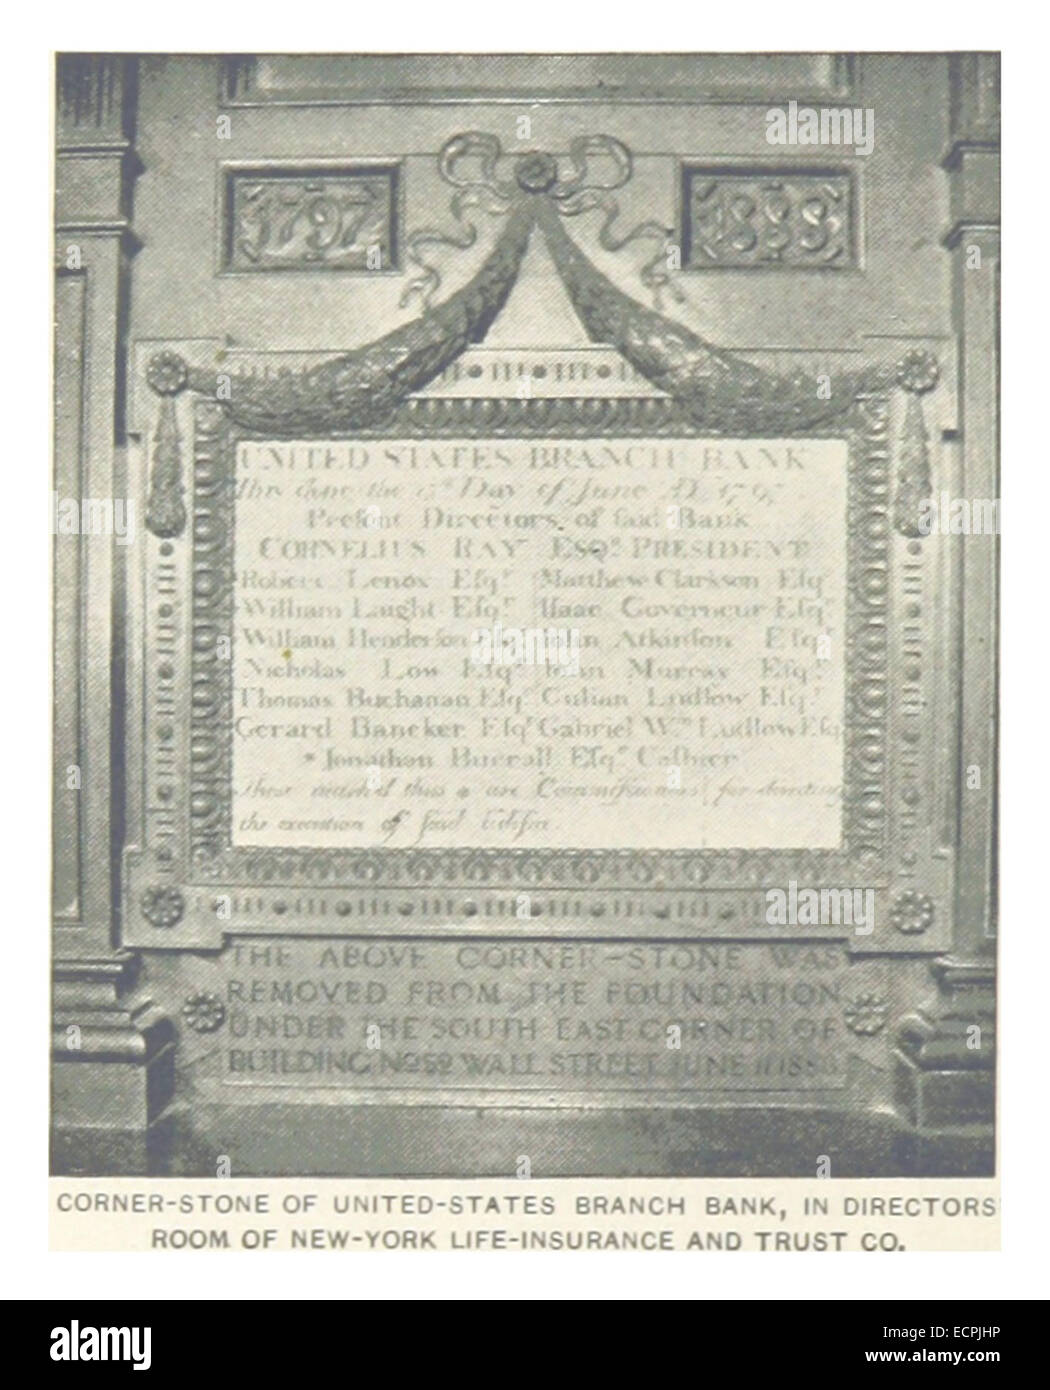 1797 1888
UNITED STATES BRANCH BANK
this stone the Day of June AD 1797
Preſent Directors of ſaid Bank
CORNELIUS RAY ESQR PRESIDENT
Robert Lenox Eſqr Matthew Clarkson Eſqr
William Laight Eſqr Iſaac Governeur Eſqr
William Henderson Eſqr John Atkinſon Eſqr
Nicholas Low Eſqr John Murray Eſqr
Thomas Buchanan Eſqr Culian Ludlow Eſqr
Gerard Bancker Eſqr Gabriel Wm Ludlow Eſqr
* Jonathan Burrall Eſqr Caſhier
those mark'd thus * are Commiſſioners for directing
the execution of ſaid Edifice.
THE ABOVE CORNER-STONE WAS
REMOVED FROM THE FOUNDATION
UNDER THE SOUTH EAST CORNER OF
BUILDING No 52 WALL STREET JUNE 11 1888
CORNER-STONE OF UNITED-STATES BRANCH BANK, IN DIRECTORS'
ROOM OF NEW-YORK LIFE-INSURANCE AND TRUST CO.
alamy
alamy stock photo
ECPJHP
www.alamy.com